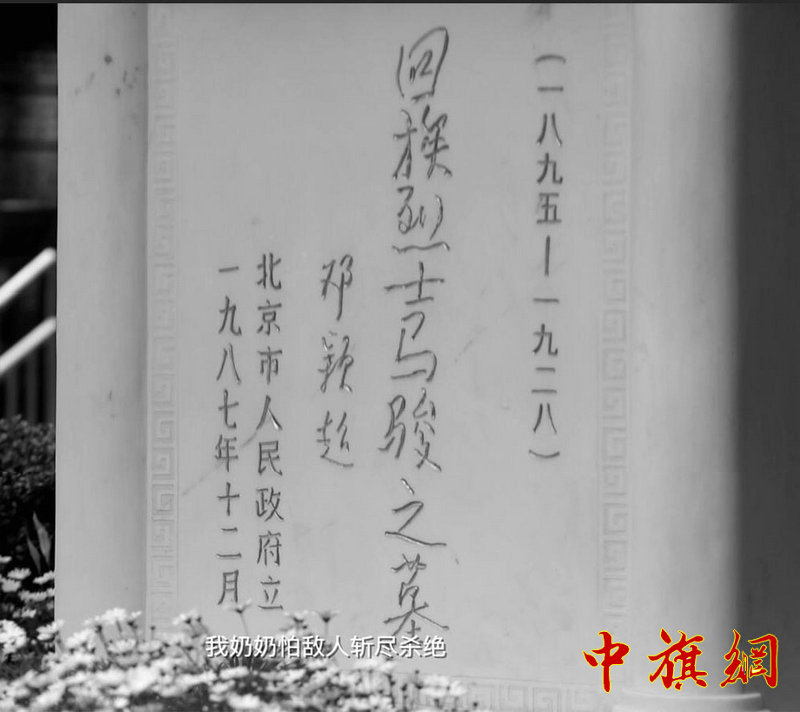 （一八九五—一九二八）
回族烈士马骏之墓
邓颖超
北京市人民政府立
一九八七年十二月
我奶奶怕敌人斩尽杀绝
中旗網